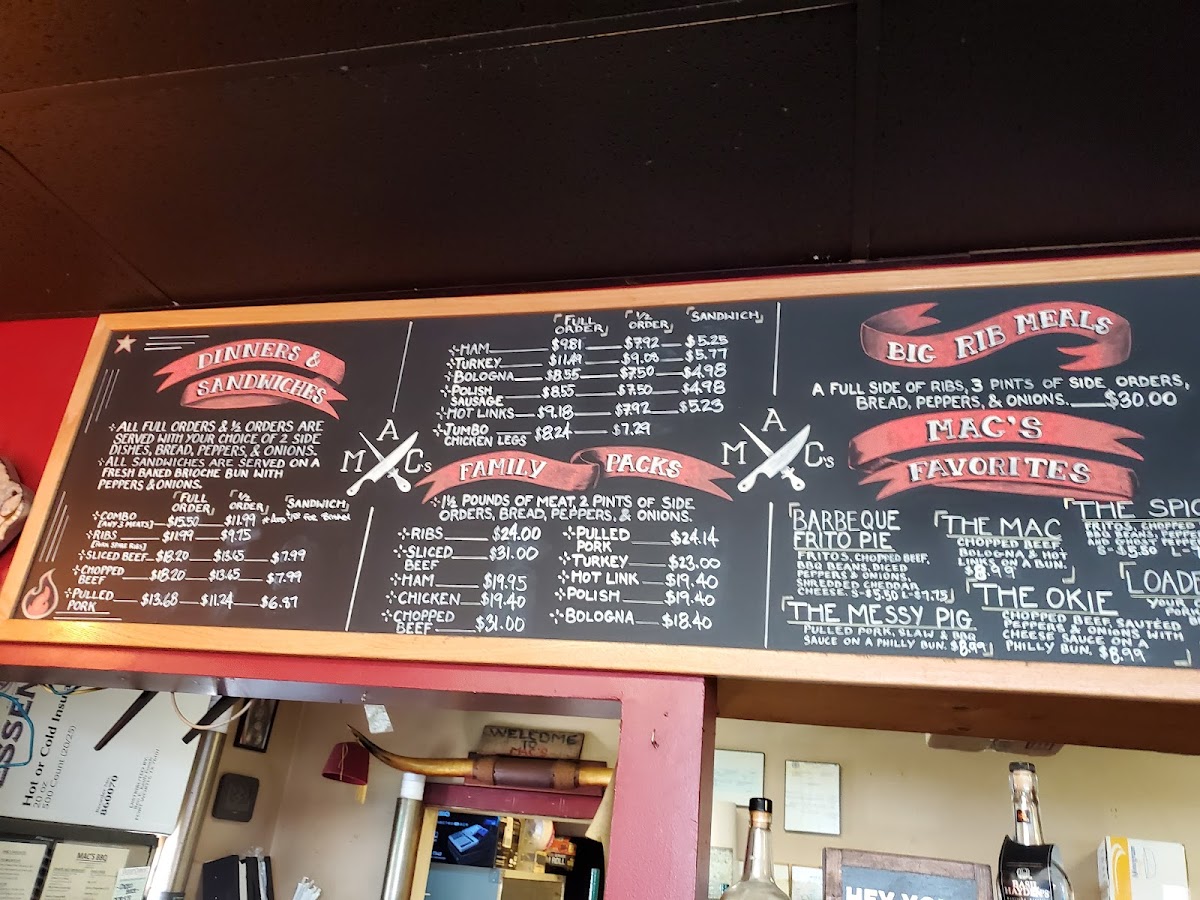 DINNERS &
SANDWICHES
ALL FULL ORDERS & ½ ORDERS ARE
SERVED WITH YOUR CHOICE OF 2 SIDE
DISHES, BREAD, PEPPERS, & ONIONS.
ALL SANDWICHES ARE SERVED ON A
FRESH BAKED BRIOCHE BUN WITH
PEPPERS & ONIONS.
FULL ORDER ½ ORDER SANDWICH
COMBO $15.50 $11.99
[ANY 3 MEATS]
RIBS $11.99 $9.75
SLICED BEEF $18.20 $13.65 $7.99
CHOPPED
BEEF $18.20 $13.65 $7.99
PULLED
PORK $13.68 $11.24 $6.87
FULL ORDER ½ ORDER SANDWICH
HAM $9.81 $7.92 $5.25
TURKEY $11.49 $9.08 $5.77
BOLOGNA $8.55 $7.50 $4.98
POLISH
SAUSAGE $8.55 $7.50 $4.98
HOT LINKS $9.18 $7.92 $5.23
JUMBO
CHICKEN LEGS $8.24 $7.29
MAC's
FAMILY PACKS
1½ POUNDS OF MEAT, 2 PINTS OF SIDE
ORDERS, BREAD, PEPPERS, & ONIONS.
RIBS $24.00
SLICED
BEEF $31.00
HAM $19.95
CHICKEN $19.40
CHOPPED
BEEF $31.00
PULLED
PORK $24.14
TURKEY $23.00
HOT LINK $19.40
POLISH $19.40
BOLOGNA $18.40
MAC's
BIG RIB MEALS
A FULL SIDE OF RIBS, 3 PINTS OF SIDE ORDERS,
BREAD, PEPPERS, & ONIONS. $30.00
MAC'S
FAVORITES
BARBEQUE
FRITO PIE
FRITOS, CHOPPED BEEF,
BBQ BEANS, DICED
PEPPERS & ONIONS,
SHREDDED CHEDDAR
CHEESE. S-$5.50 L-$7.75
THE MESSY PIG
PULLED PORK, SLAW & BBQ
SAUCE ON A PHILLY BUN. $8.99
THE MAC
CHOPPED BEEF,
BOLOGNA & HOT
LINKS ON A BUN.
$8.99
THE OKIE
CHOPPED BEEF SAUTÉED
PEPPERS & ONIONS, WITH
CHEESE SAUCE ON A
PHILLY BUN. $8.99
THE SPIC
FRITOS, CHOPPED
BBQ BEANS,
S-$5.50 L-
LOADE
YOUR
PORK
Hot or Cold Insu
20 oz
500 Count (20/25)
860070
MAC'S BBQ
WELCOME
TO
MAC'S
HEY YO
BASIL
HAYDEN'S